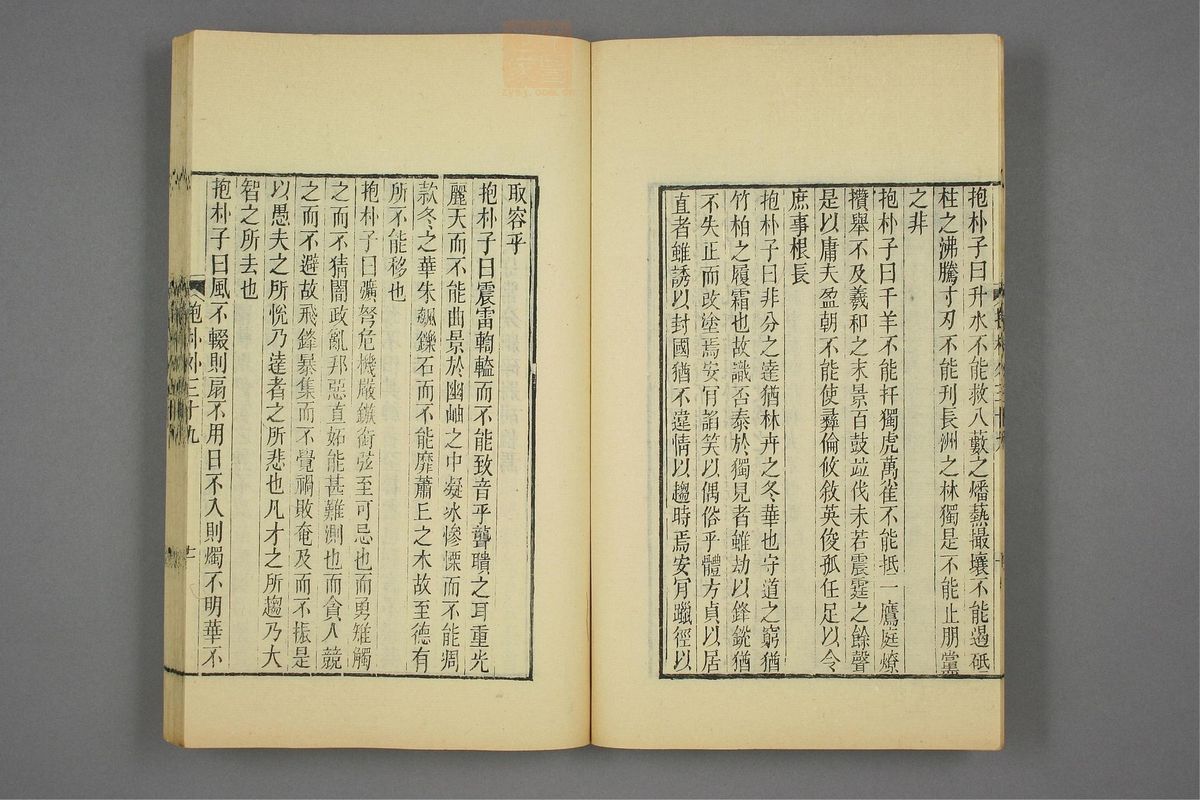 抱朴子曰升水不能救八藪之燔爇撮壤不能遏砥
柱之沸騰寸刃不能刋長洲之林獨是不能止朋黨
之非
抱朴子曰千羊不能扞獨虎萬雀不能抵一鷹庭燎
攢舉不及羲和之末景百鼓竝伐未若震霆之餘聲
是以庸夫盈朝不能使彝倫攸敘英俊孤任足以令
庶事根長
抱朴子曰非分之達猶林卉之冬華也守道之窮猶
竹柏之履霜也故識否泰於獨見者雖劫以鋒銳猶
不失正而改塗焉安肎諂笑以偶俗乎體方貞以居
直者雖誘以封國猶不違情以趨時焉安肎躐徑以
取容乎
抱朴子曰震雷輷輷而不能致音乎聾聵之耳重光
麗天而不能曲景於幽岫之中凝冰慘慄而不能凋
款冬之華朱飈鑠石而不能靡蕭丘之木故至德有
所不能移也
抱朴子曰彍弩危機嚴鏃銜弦至可忌也而勇雉觸
之而不猜闇政亂邦惡直妬能甚難測也而貪人競
之而不避故飛鋒暴集而不覺禍敗奄及而不振是
以愚夫之所悅乃達者之所悲也凡才之所趨乃大
智之所去也
抱朴子曰風不輟則扇不用日不入則燭不明華不
抱朴外三十九
十一